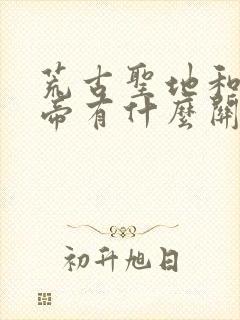 荒古聖地和
帝有什麼關
初升旭日